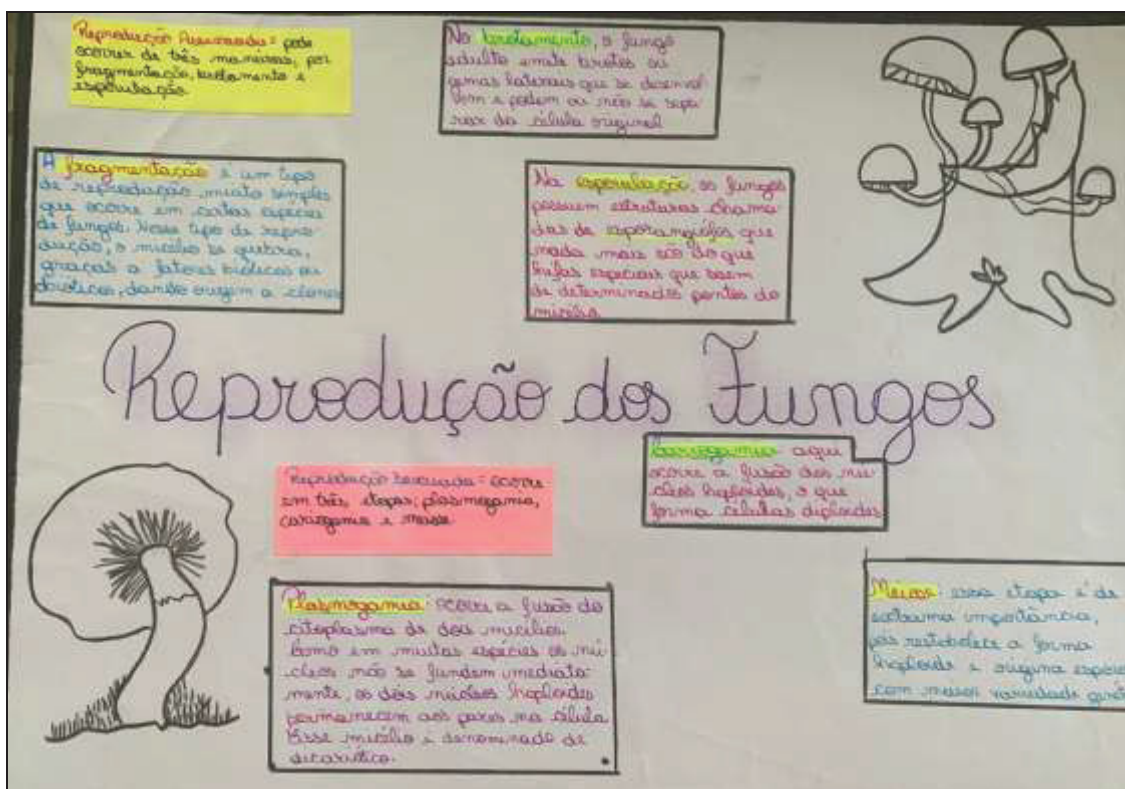 Reprodução Assexuada = pode
ocorrer de três maneiras, por
fragmentação, brotamento e
esporulação.
No brotamento, o fungo
adulto emite brotos ou
gemas laterais que se desenvol
vem e podem ou não se sepa
rar da célula original
A fragmentação é um tipo
de reprodução muito simples
que ocorre em certas espécies
de fungos. Nesse tipo de repro-
dução, o micélio se quebra,
graças a fatores bióticos ou
abióticos, dando origem a clones
Na esporulação, os fungos
possuem estruturas chama
das de esporangiófos que
nada mais são do que
hifas especiais que saem
de determinados pontos do
micélio.
Reprodução dos Fungos
Cariogamia aqui
ocorre a fusão dos nú-
cleos haploides, o que
forma células diploides
Reprodução Sexuada = ocorre
em três etapas; plasmogamia,
cariogamia e
Plasmogamia: ocorre a fusão do
citoplasma de dois micélios.
Como em muitas espécies os nú-
cleos não se fundem imediata-
mente, os dois núcleos haploides
permanecem aos pares na célula
Esse micélio é denominado de
dicariótico.
Meiose: essa etapa é de
extrema importância,
pois restabelece a forma
haploide e origina esporos
com maior variedade